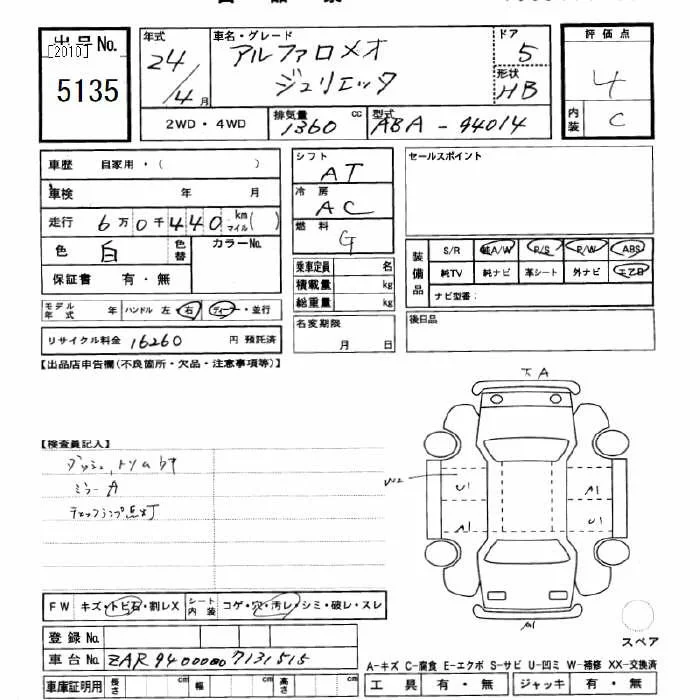 出品No.
[2010]
5135
年式
24/4月
車名・グレード
アルファロメオ
ジュリエッタ
ドア
5
形状
HB
評価点
4
内装
C
2WD・4WD
排気量
1360 cc
型式
ABA-94014
車歴 自家用・( )
車検 年 月
走行 6万0千440 km マイル( )
色 白 色替 カラーNo.
保証書 有・無
モデル年式 年 ハンドル 左・右 ディーラー・並行
リサイクル料金 16260 円 預託済
シフト
AT
冷房
AC
燃料
G
乗車定員 名
積載量 kg
総重量 kg
名変期限
月 日
セールスポイント
装備品
S/R 純A/W P/S P/W ABS
純TV 純ナビ 革シート 外ナビ エアB
ナビ型番:
後日品
【出品店申告欄(不良箇所・欠品・注意事項等)】
【検査員記入】
ダッシュ、トリムウキ
ミラーA
チェックランプ点灯
下A
W2
U1
A1
A1
U1
A1
FW キズ・トビ石・割レX シート内装 コゲ・穴・汚レ・シミ・破レ・スレ
登録No.
車台No. ZAR94000007131515
車庫証明用 長さ cm 幅 cm 高さ cm
スペア
A-キズ C-腐食 E-エクボ S-サビ U-凹ミ W-補修 XX-交換済
工具 有・無 ジャッキ 有・無